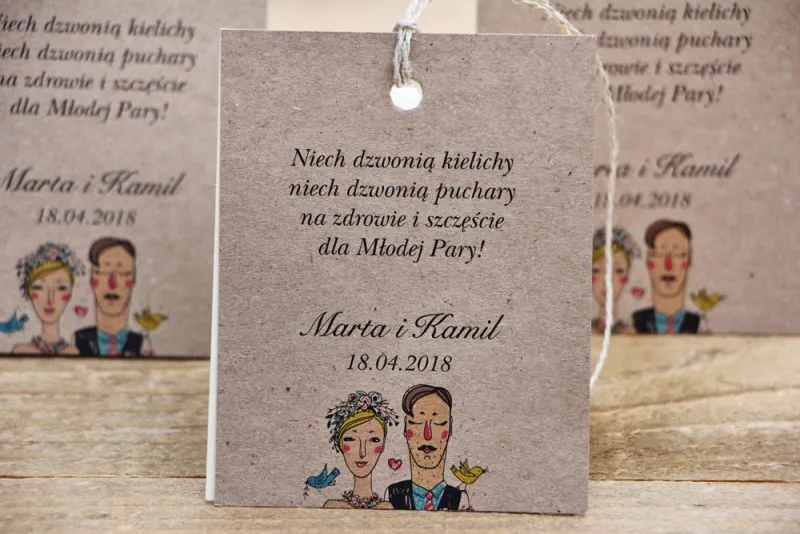 Niech dzwonią kielichy
niech dzwonią puchary
na zdrowie i szczęście
dla Młodej Pary!
Marta i Kamil
18.04.2018
Niech dzwonią kielichy
niech dzwonią puchary
na zdrowie i szczęście
dla Młodej Pary!
Marta i Kamil
18.04.2018
dzwonią kielichy
dzwonią puchary
Młodej Pary!
Kamil
.2018